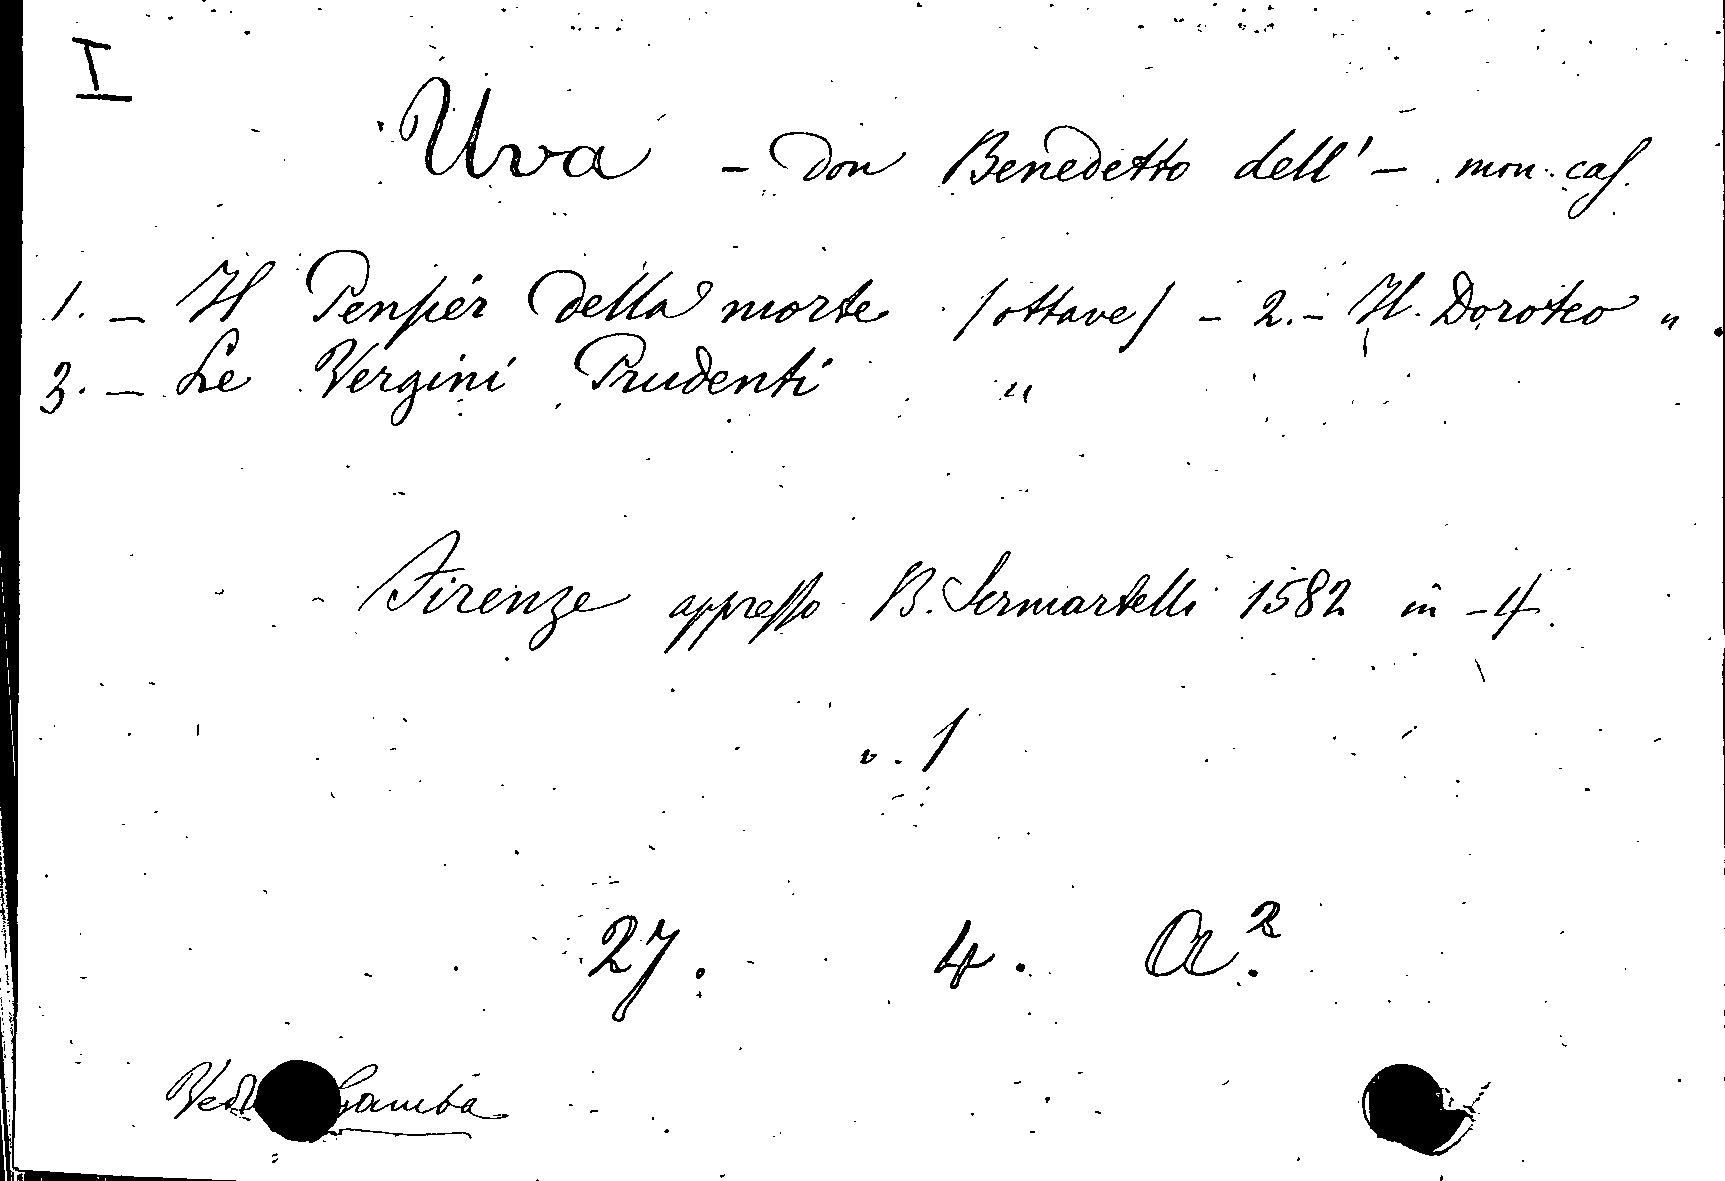 I
Uva - Don Benedetto dell' - mon. cas.
1. - Il Pensiér della morte (ottave) - 2. - Il Doroteo " .
3. - Le Vergini Prudenti "
Firenze appresso B. Sermartelli 1582 in -4.
v. 1
27. 4. A.²
Vedi Gamba